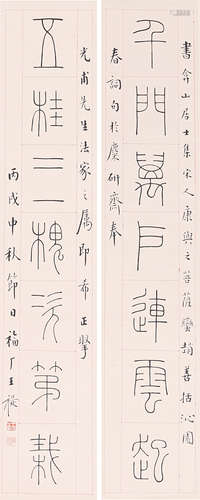 書弇山居士集宋人康與之菩薩蠻趙善括沁園
千門萬戶連雲起
春詞句於麋研齋奉
光甫先生法家之屬即希正
五桂三槐次第栽
丙戌中秋節日福厂王禔